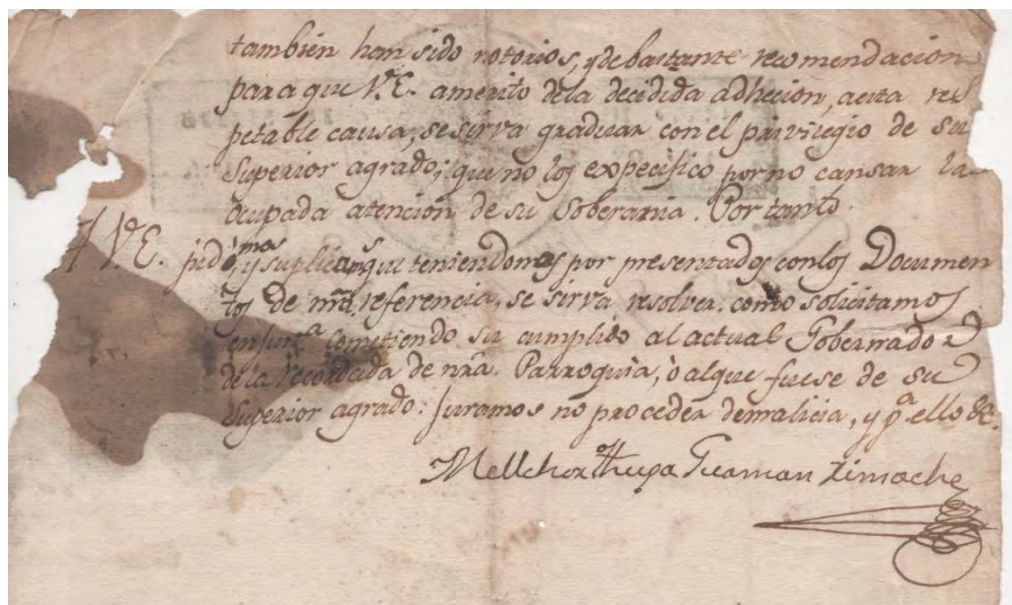 también han sido notorios, y de bastante recomendacion
para que V.E. amerito dela decidida adhecion, aesta res
petable causa, se sirva graduar con el privilegio de su
Superior agrado; que no los expecifico por no cansar la
ocupada atencion de su Soberania. Por tanto
A V.E. pido, y suplicamos que teniendonos por presentados conlos Documen
tos de nra referencia, se sirva resolver, como solicitamos
en just.ª cometiendo su cumplido al actual Gobernador
dela recordada de nra. Parroquia, ò alque fuese de su
Superior agrado. Juramos no proceder demalicia, y p.ª ello &c.
Mellchor Guaman Ximache